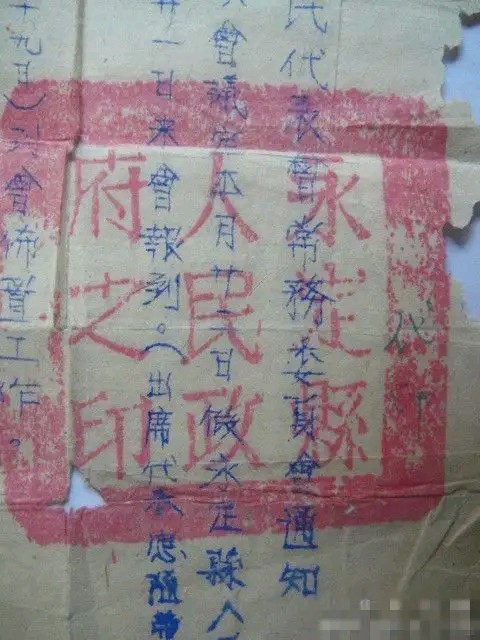 代
民代表會常務委員會通知
會議定五月廿二日做永定縣人
廿一日来會報到。(出席代表應隨帶
十九日)到會佈置工作。
永定縣
人民政
府之印